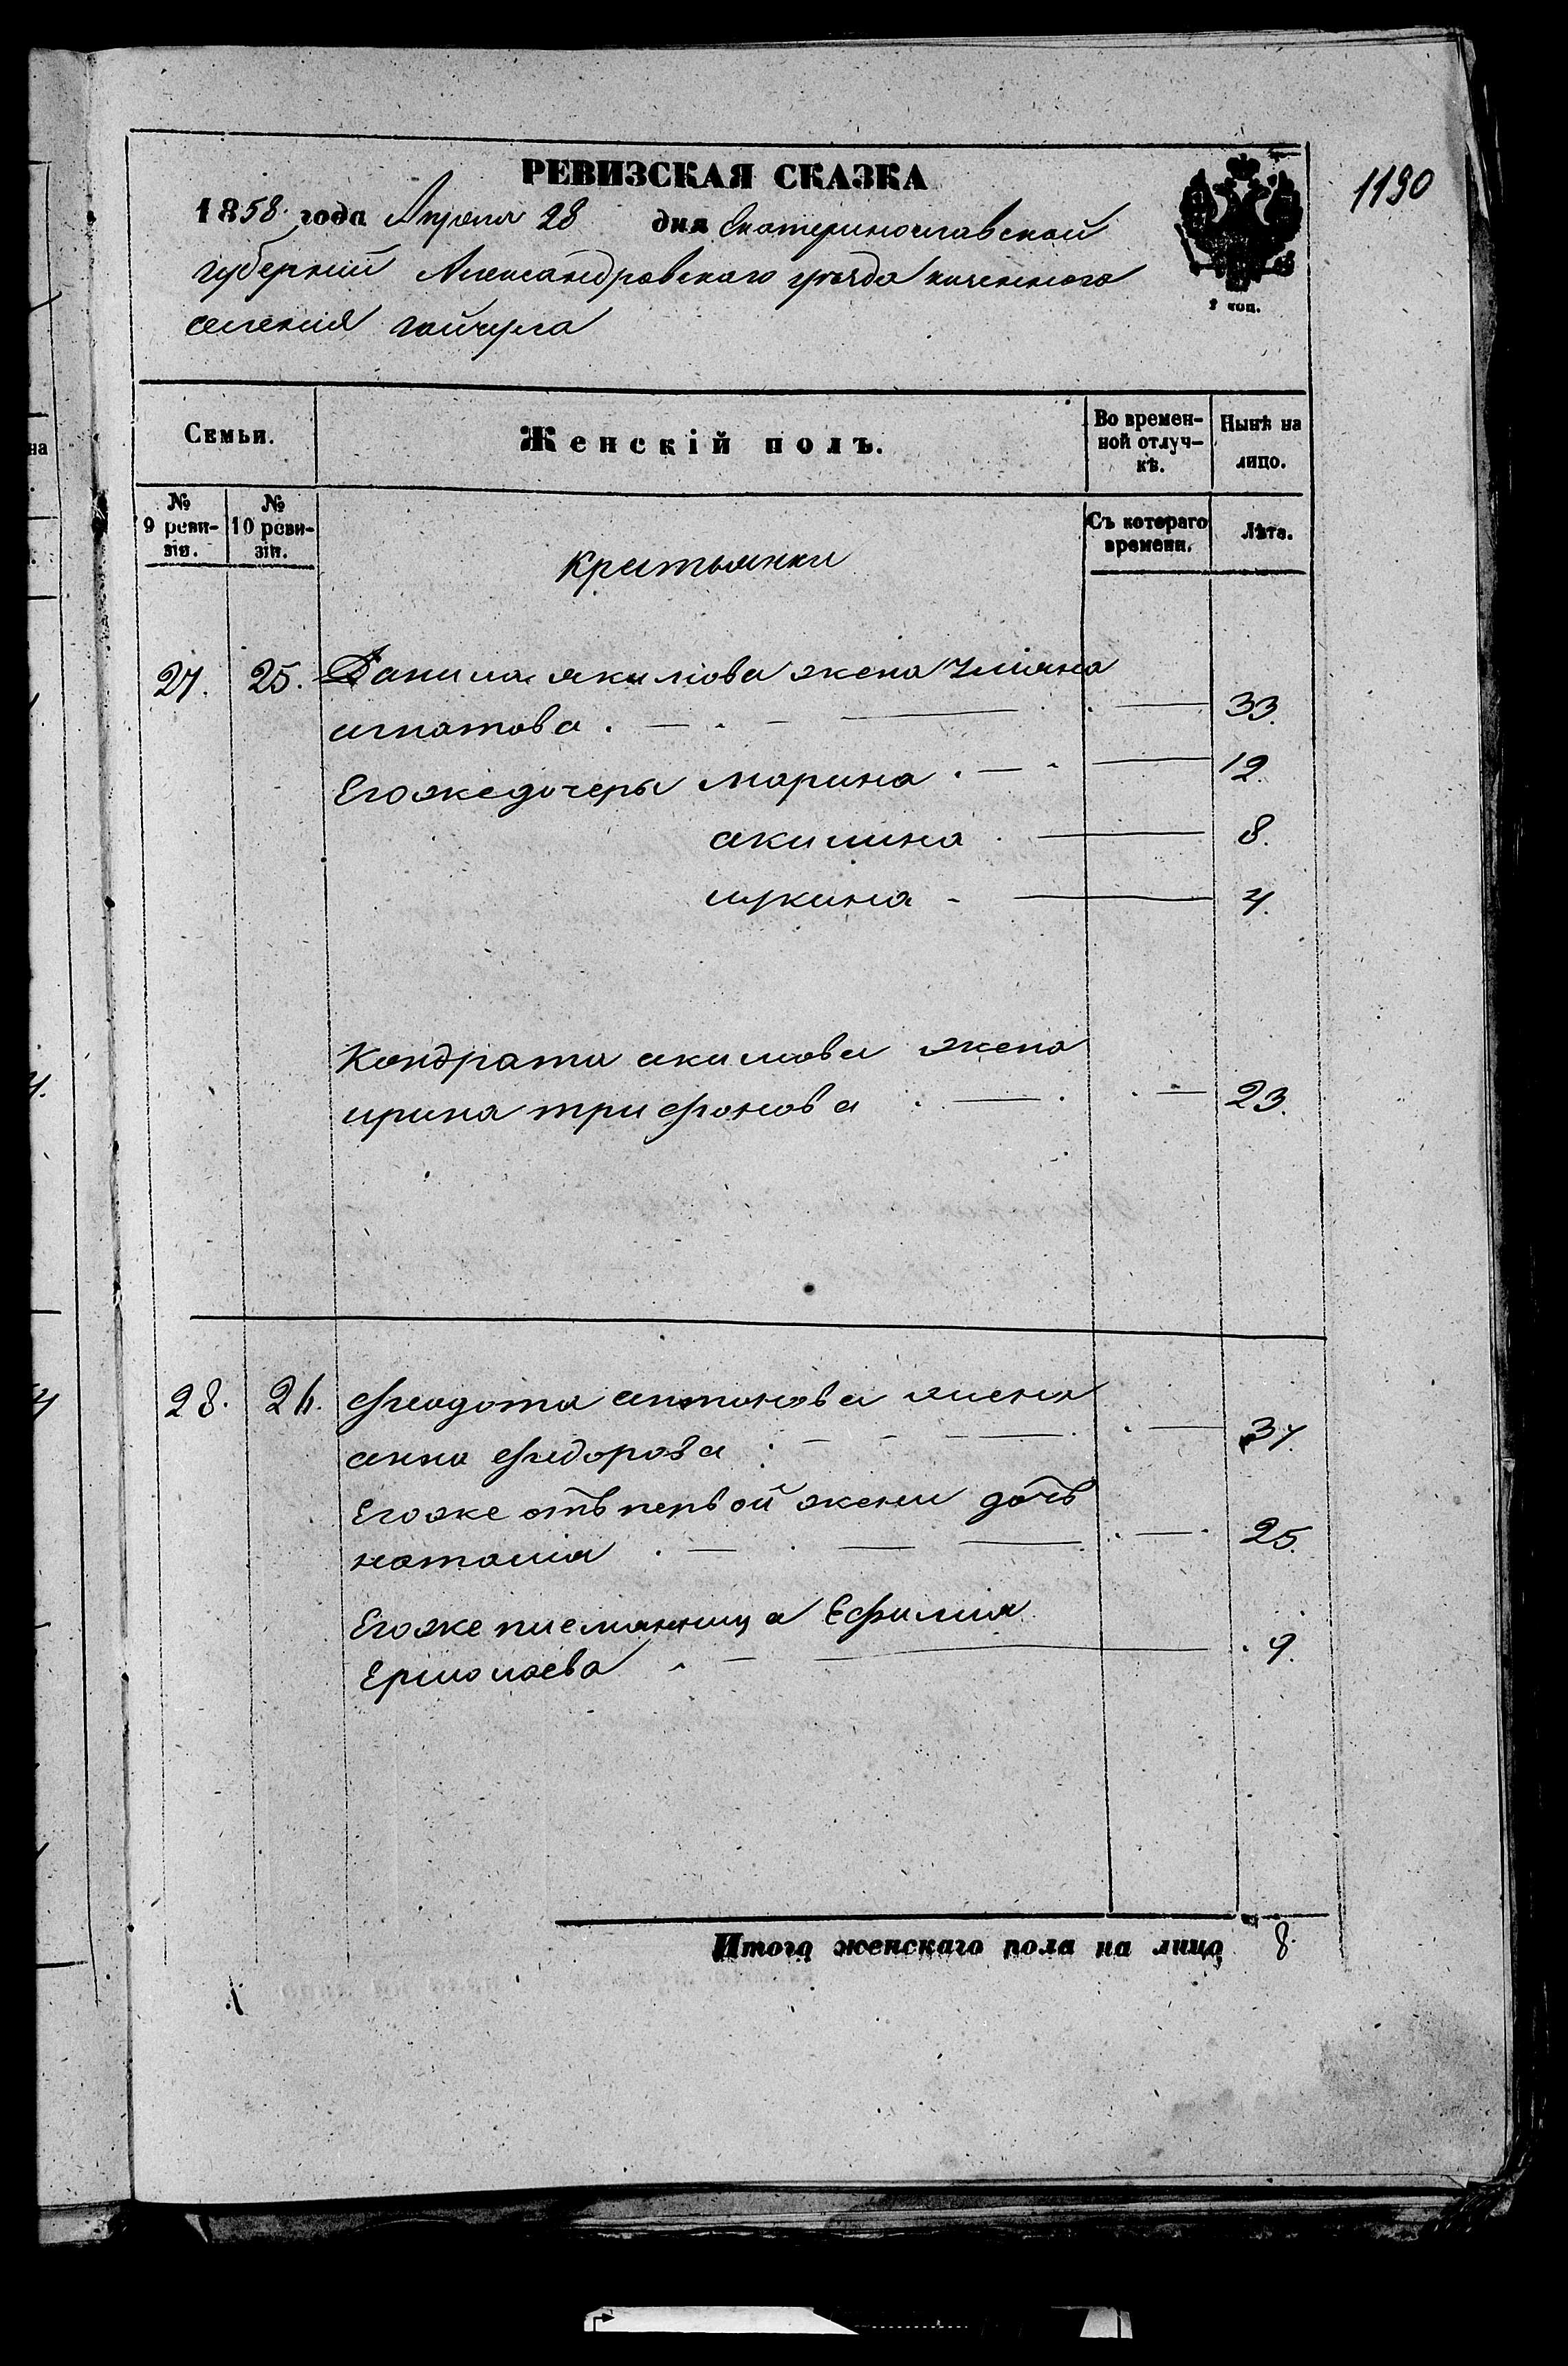 1190
РЕВИЗСКАЯ СКАЗКА
1858 года Апреля 28 дня Екатеринославской
губернии Александровскаго уѣзда казенного
селения гайчула
2 коп.
Семьи.
Женскій полъ.
Во времен-
ной отлуч-
кѣ.
Нынѣ на
лицо.
№
9 реви-
зіи.
№
10 реви-
зіи.
Съ котораго
времени.
Лѣта.
крестьянки
27. 25. Данила якимова жена Улияна
игнатова . 33.
Егоже дочеры марина . 12
акилина . 8.
лукина 4.
Кондрата акимова жена
ирина трифонова 23.
28. 26. феодота антонова жена
анна федорова 37.
Егоже отъ первой жены дочь
наталия . 25.
Егоже племянница Ефимия
Ермолаева . 9.
Итого женскаго пола на лицо 8.